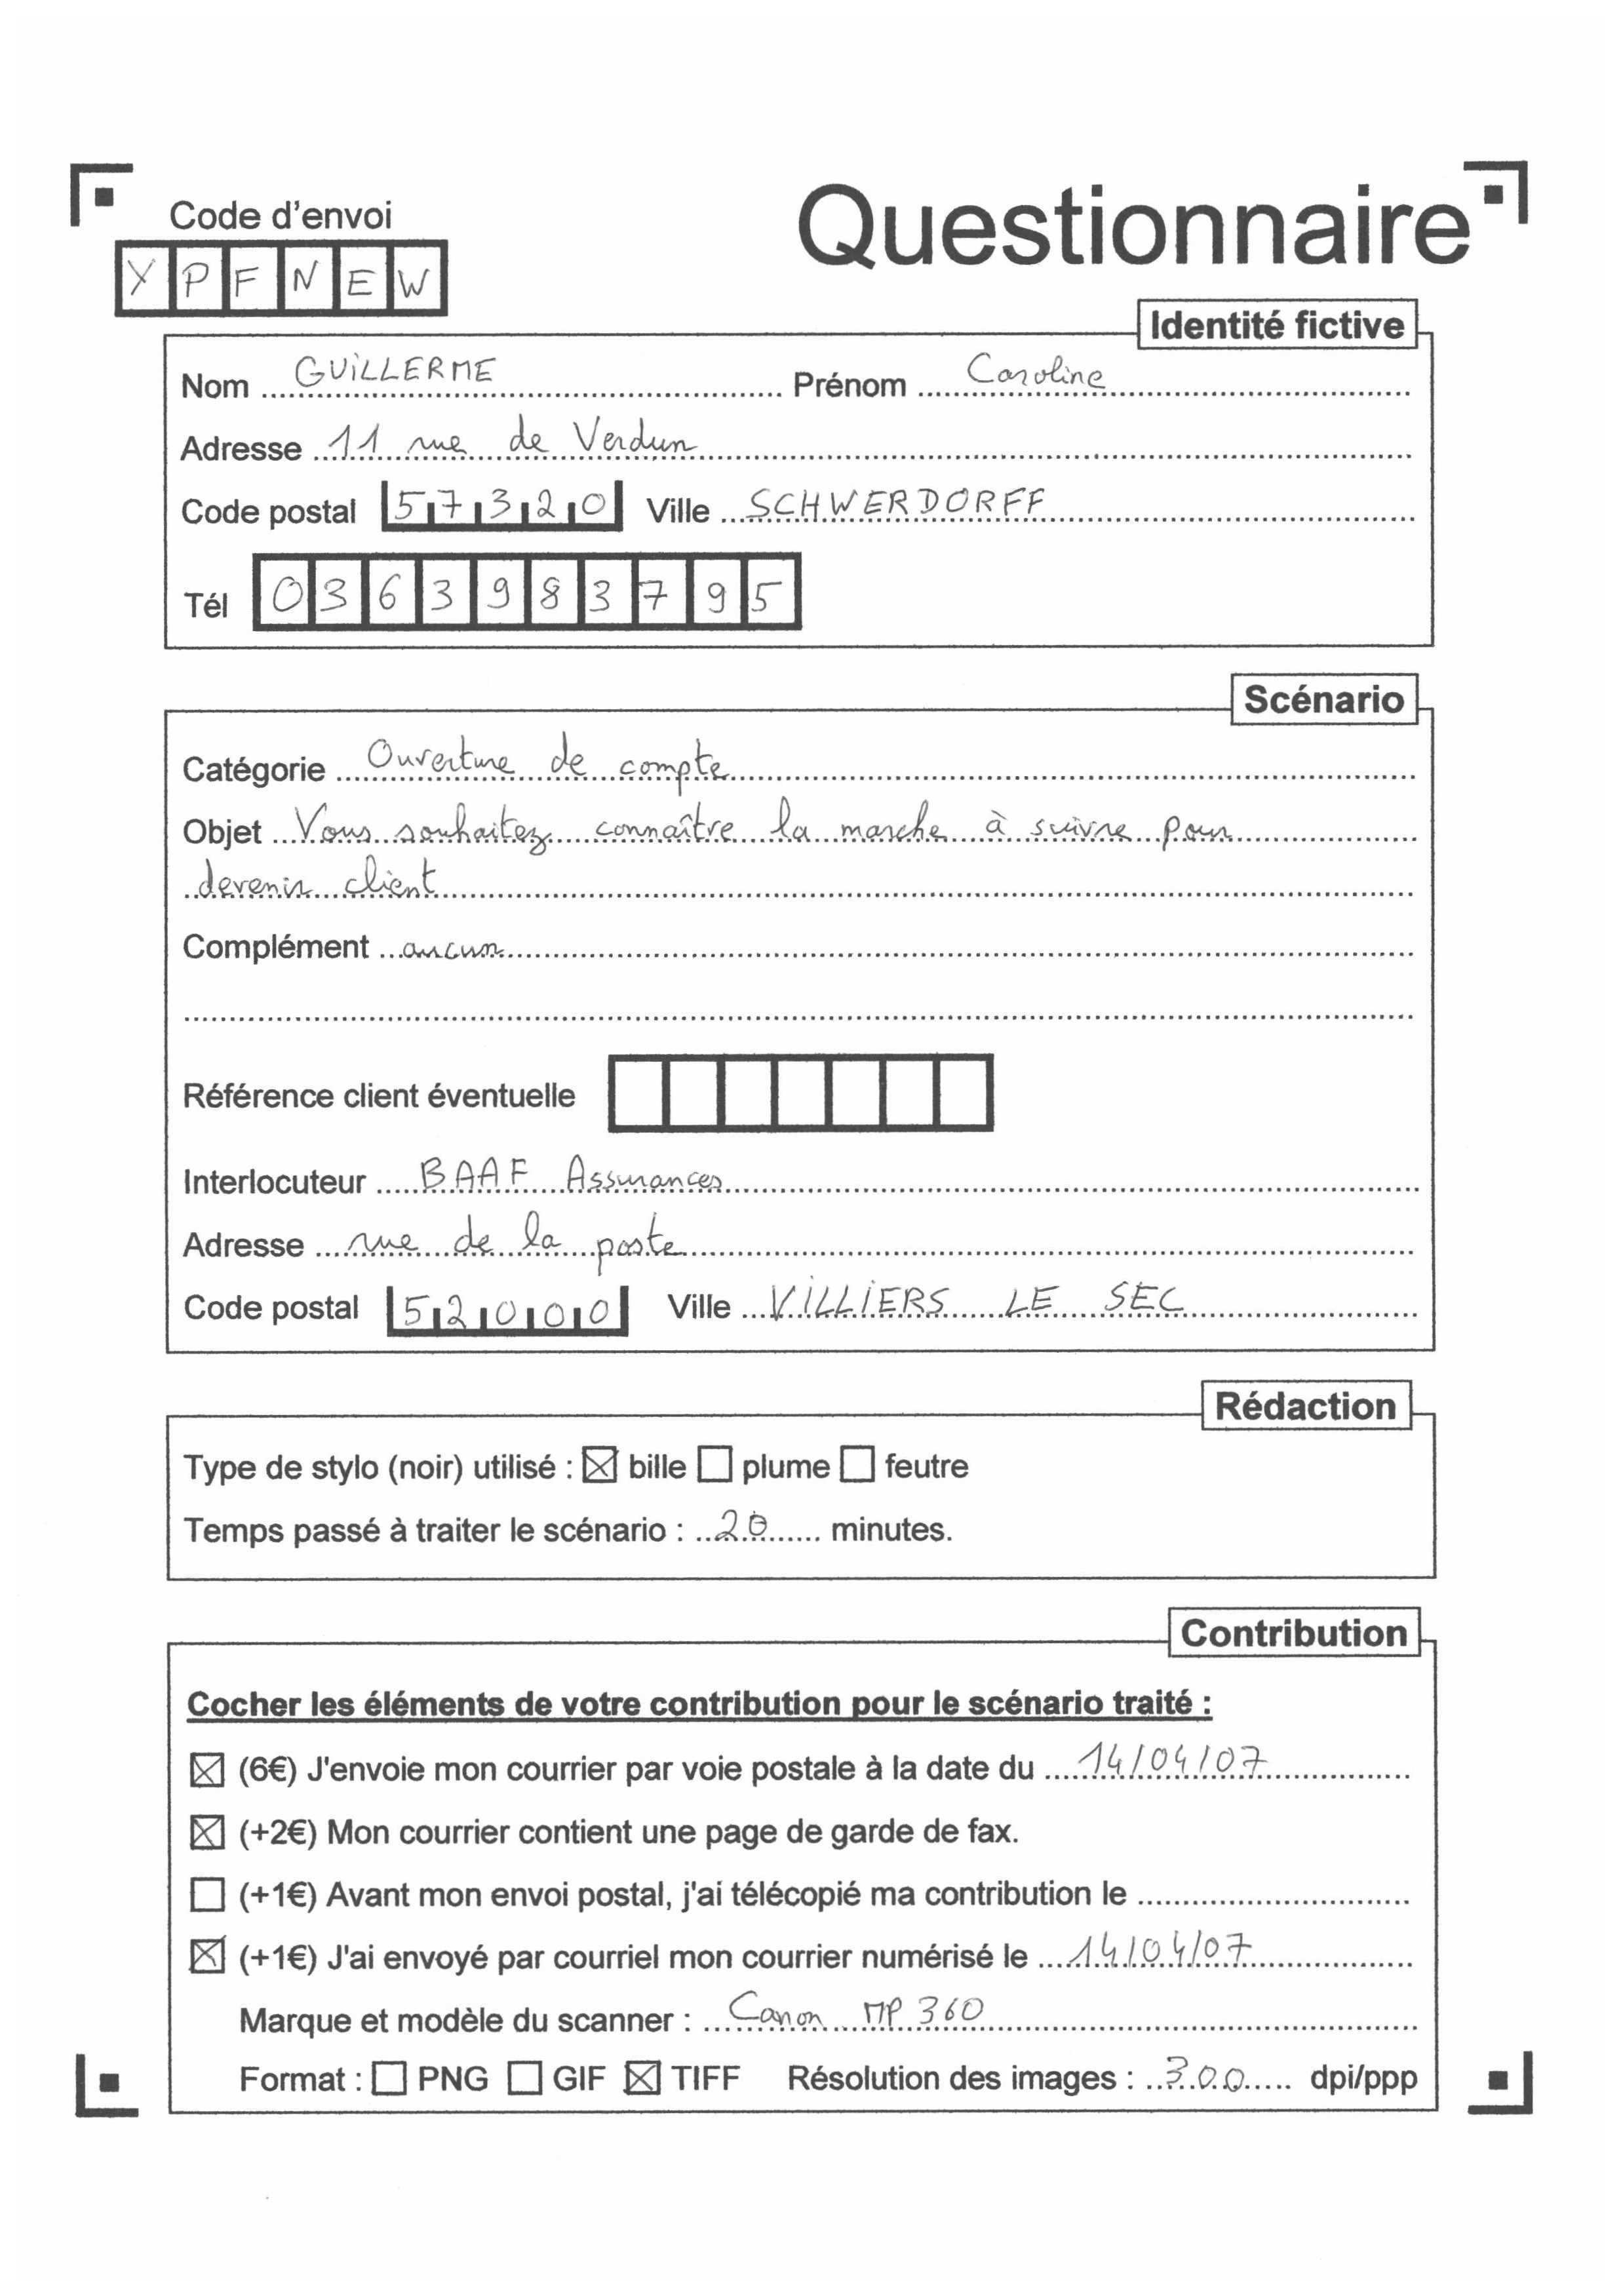 Code d'envoi
Questionnaire
XPFNEW
Identité fictive
Nom GUILLERME Prénom Caroline
Adresse 11 rue de Verdun
Code postal 57320 Ville SCHWERDORFF
Tél 0363983795
Scénario
Catégorie Ouverture de compte
Objet Vous souhaitez connaître la marche à suivre pour
devenir client
Complément aucun
Référence client éventuelle
Interlocuteur BAAF Assurances
Adresse rue de la poste
Code postal 52000 Ville VILLIERS LE SEC
Rédaction
Type de stylo (noir) utilisé : ☒ bille ☐ plume ☐ feutre
Temps passé à traiter le scénario : 20 minutes.
Contribution
Cocher les éléments de votre contribution pour le scénario traité :
☒ (6€) J'envoie mon courrier par voie postale à la date du 14/04/07
☒ (+2€) Mon courrier contient une page de garde de fax.
☐ (+1€) Avant mon envoi postal, j'ai télécopié ma contribution le
☒ (+1€) J'ai envoyé par courriel mon courrier numérisé le 14/04/07
Marque et modèle du scanner : Canon MP 360
Format : ☐ PNG ☐ GIF ☒ TIFF Résolution des images : 300 dpi/ppp